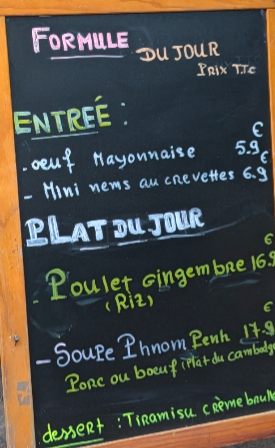 FORMULE DU JOUR
Prix TTC
ENTREÉ :
€
- oeuf Mayonnaise 5.9
- Mini nems au crevettes 6.9
PLAT DU JOUR
€
- Poulet Gingembre 16.9
(Riz)
€
- Soupe Phnom Penh 17.9
Porc ou boeuf (Plat du cambodge
dessert : Tiramisu crème brulé